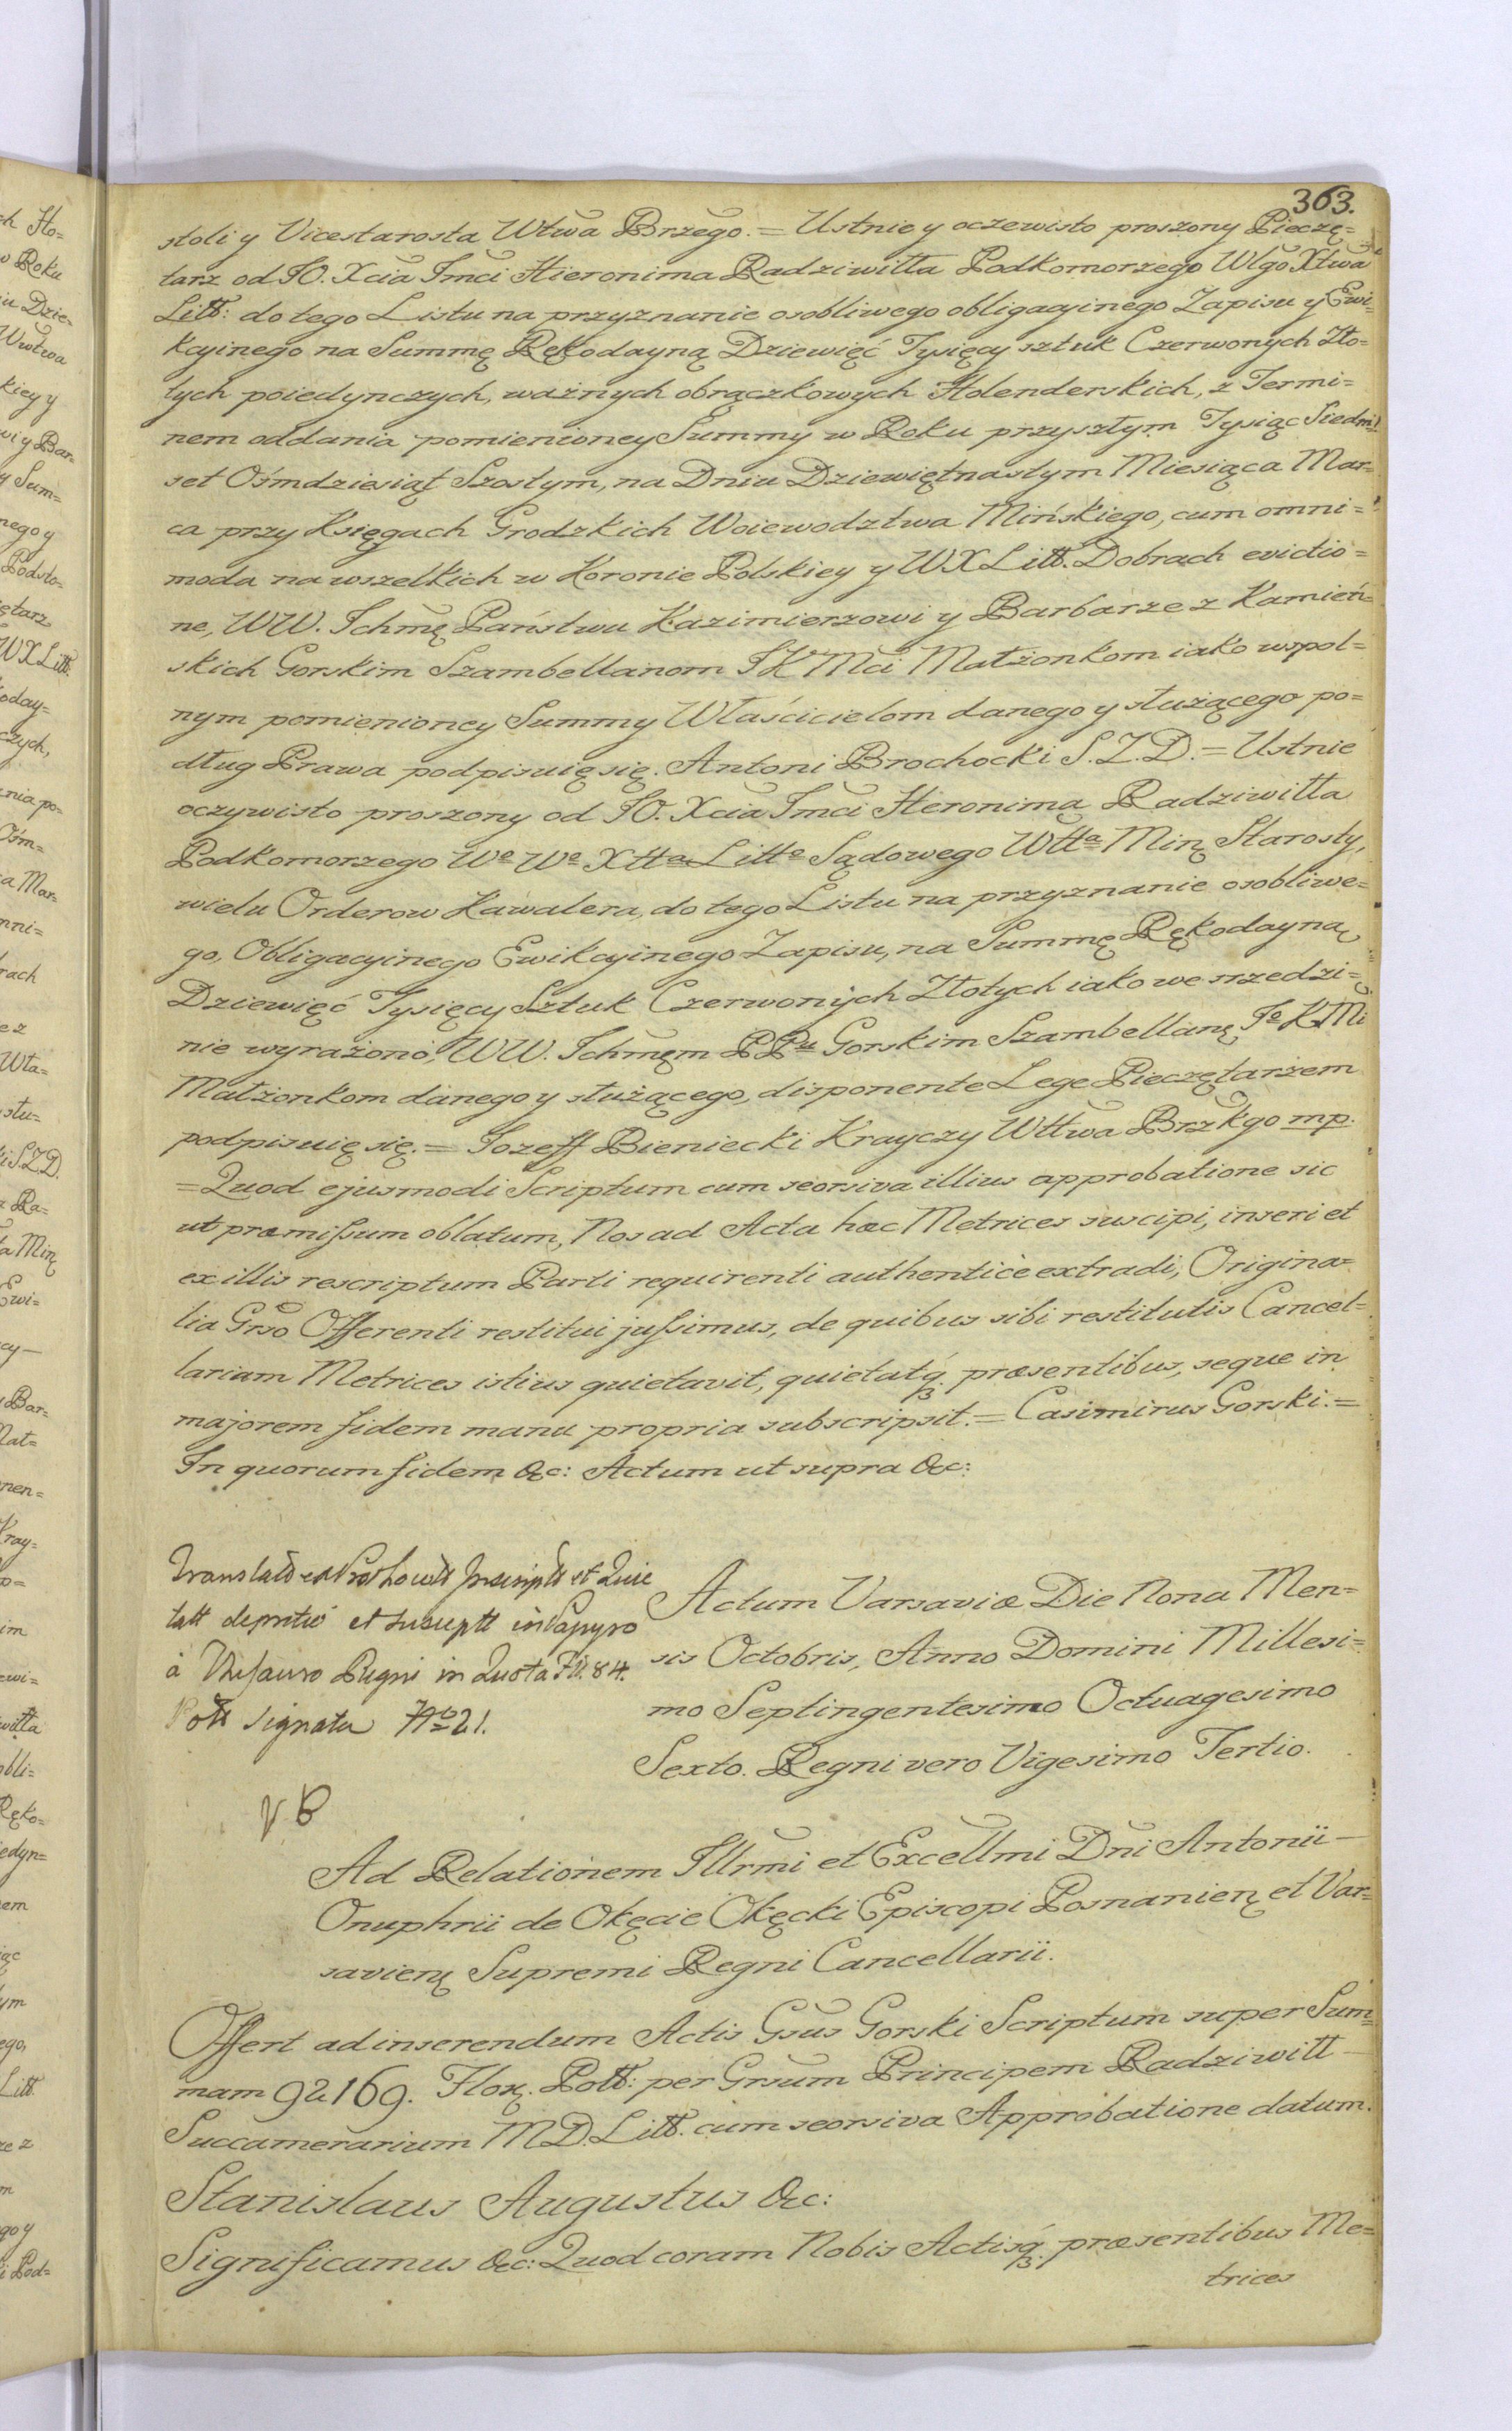 363.
stoli y Vicestarosta Wtwa Brzego. = Ustnie y oczewisto proszony Pieczę=
tarz od JO. Xcia Jmci Hieronima Radziwiłła Podkomorzego Wlgo Xtwa
Litt: do tego Listu na przyznanie osobliwego obligacyinego Zapisu y Ewi=
kcyinego na Summę Rękodayną Dziewięć Tysięcy sztuk Czerwonych Zło=
tych poiedynczych, ważnych obrączkowych Holenderskich, z Termi=
nem oddania pomienioney Summy w Roku przyszłym Tysiąc Siedm
set Ośmdziesiąt Szostym, na Dniu Dziewiętnastym Miesiąca Mar=
ca przy Księgach Grodzkich Woiewodztwa Mińskiego, cum omni=
moda na wszelkich w Koronie Polskiey y WXLitt. Dobrach evictio=
ne, WW. Ichmę Państwu Kazimierzowi y Barbarze z Kamień=
skich Gorskim Szambellanom JKMci Małżonkom iako wspol=
nym pomienioney Summy Właścicielom danego y służącego po=
dług Prawa podpisuię się. Antoni Brochocki S.Z.D. = Ustnie
oczywisto proszony od JO. Xcia Jmci Hieronima Radziwiłła
Podkomorzego Wo Wo Xtta Litto Sądowego Wtta Minę Starosty,
wielu Orderow Kawalera, do tego Listu na przyznanie osobliwe=
go, Obligacyinego Ewikcyinego Zapisu, na Summę Rękodayną
Dziewięć Tysięcy Sztuk Czerwonych Złotych iako we srzedzi=
nie wyrażono, WW. Ichmęm PPu Gorskim Szambellanę Jo KMi
Małżonkom danego y służącego, disponente Lege Pieczętarzem
podpisuię się. = Jozeff Bieniecki Krayczy Wttwa Brzkgo mp.
= Quod ejusmodi Scriptum cum seorsiva illius approbatione sic
ut præmissum oblatum, Nos ad Acta hæc Metrices suscipi, inseri et
ex illis rescriptum Parti requirenti authenticè extradi, Origina=
lia Grso Offerenti restitui jussimus, de quibus sibi restitutis Cancel=
lariam Metrices istius quietavit, quietatq præsentibus, seque in
majorem fidem manu propria subscripsit. = Casimirus Gorski. =
In quorum fidem &c: Actum ut supra &c:
et Quie
tatt et Suscept in Papyro
à Thesauro Regni in Quota Fl. 84.
Pott signata No 21.
Actum Varsaviæ Die Nona Men=
sis Octobris, Anno Domini Millesi=
mo Septingentesimo Octuagesimo
Sexto. Regni vero Vigesimo Tertio.
Ad Relationem Illrmi et Excellmi Dni Antonii
Onuphrii de Okęcie Okęcki Episcopi Posnanienę et Var=
savienę Supremi Regni Cancellarii.
Offert ad inserendum Actis Gsus Gorski Scriptum super Sum=
mam 92169. Flor. Pott: per Grsum Principem Radziwiłł
Succamerarium M.D. Litt. cum seorsiva Approbatione datum.
Stanislaus Augustus &c:
Significamus &c: Quod coram Nobis Actisq præsentibus Me=
trices